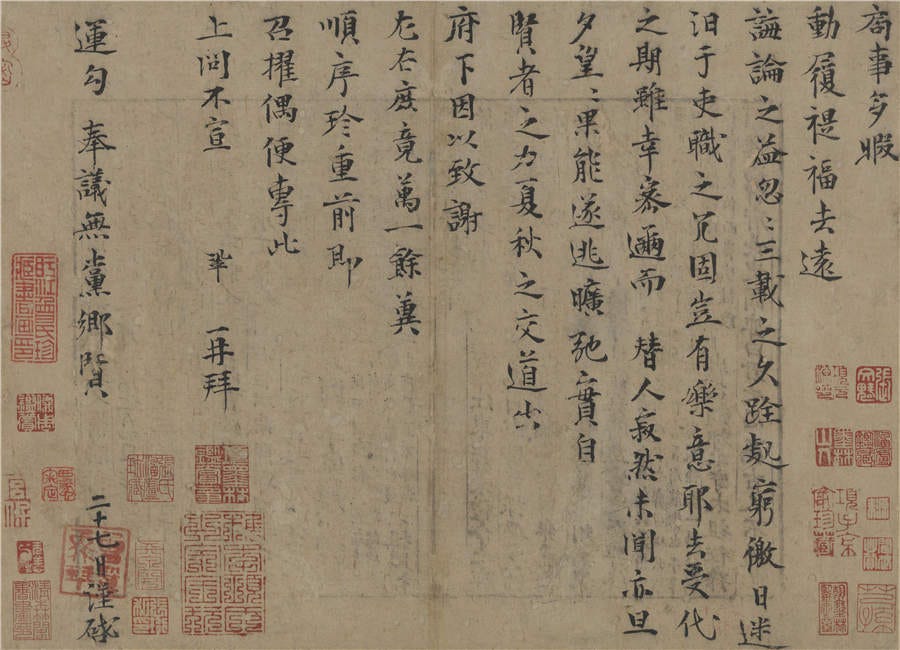 局事多暇
動履禔福去遠
誨論之益忽〻三載之久跧處窮徼日迷
汨于吏職之冗固豈有樂意耶去受代
之期雖幸密邇而　替人寂然未聞亦旦
夕望〻果能遂逃曠弛實自
賢者之力夏秋之交道出
府下因以致謝
左右庶竟萬一餘冀
順序珍重前即
召擢偶便專此
上問不宣　鞏　再拜
運勾　奉議無黨鄉賢　二十七日謹啟